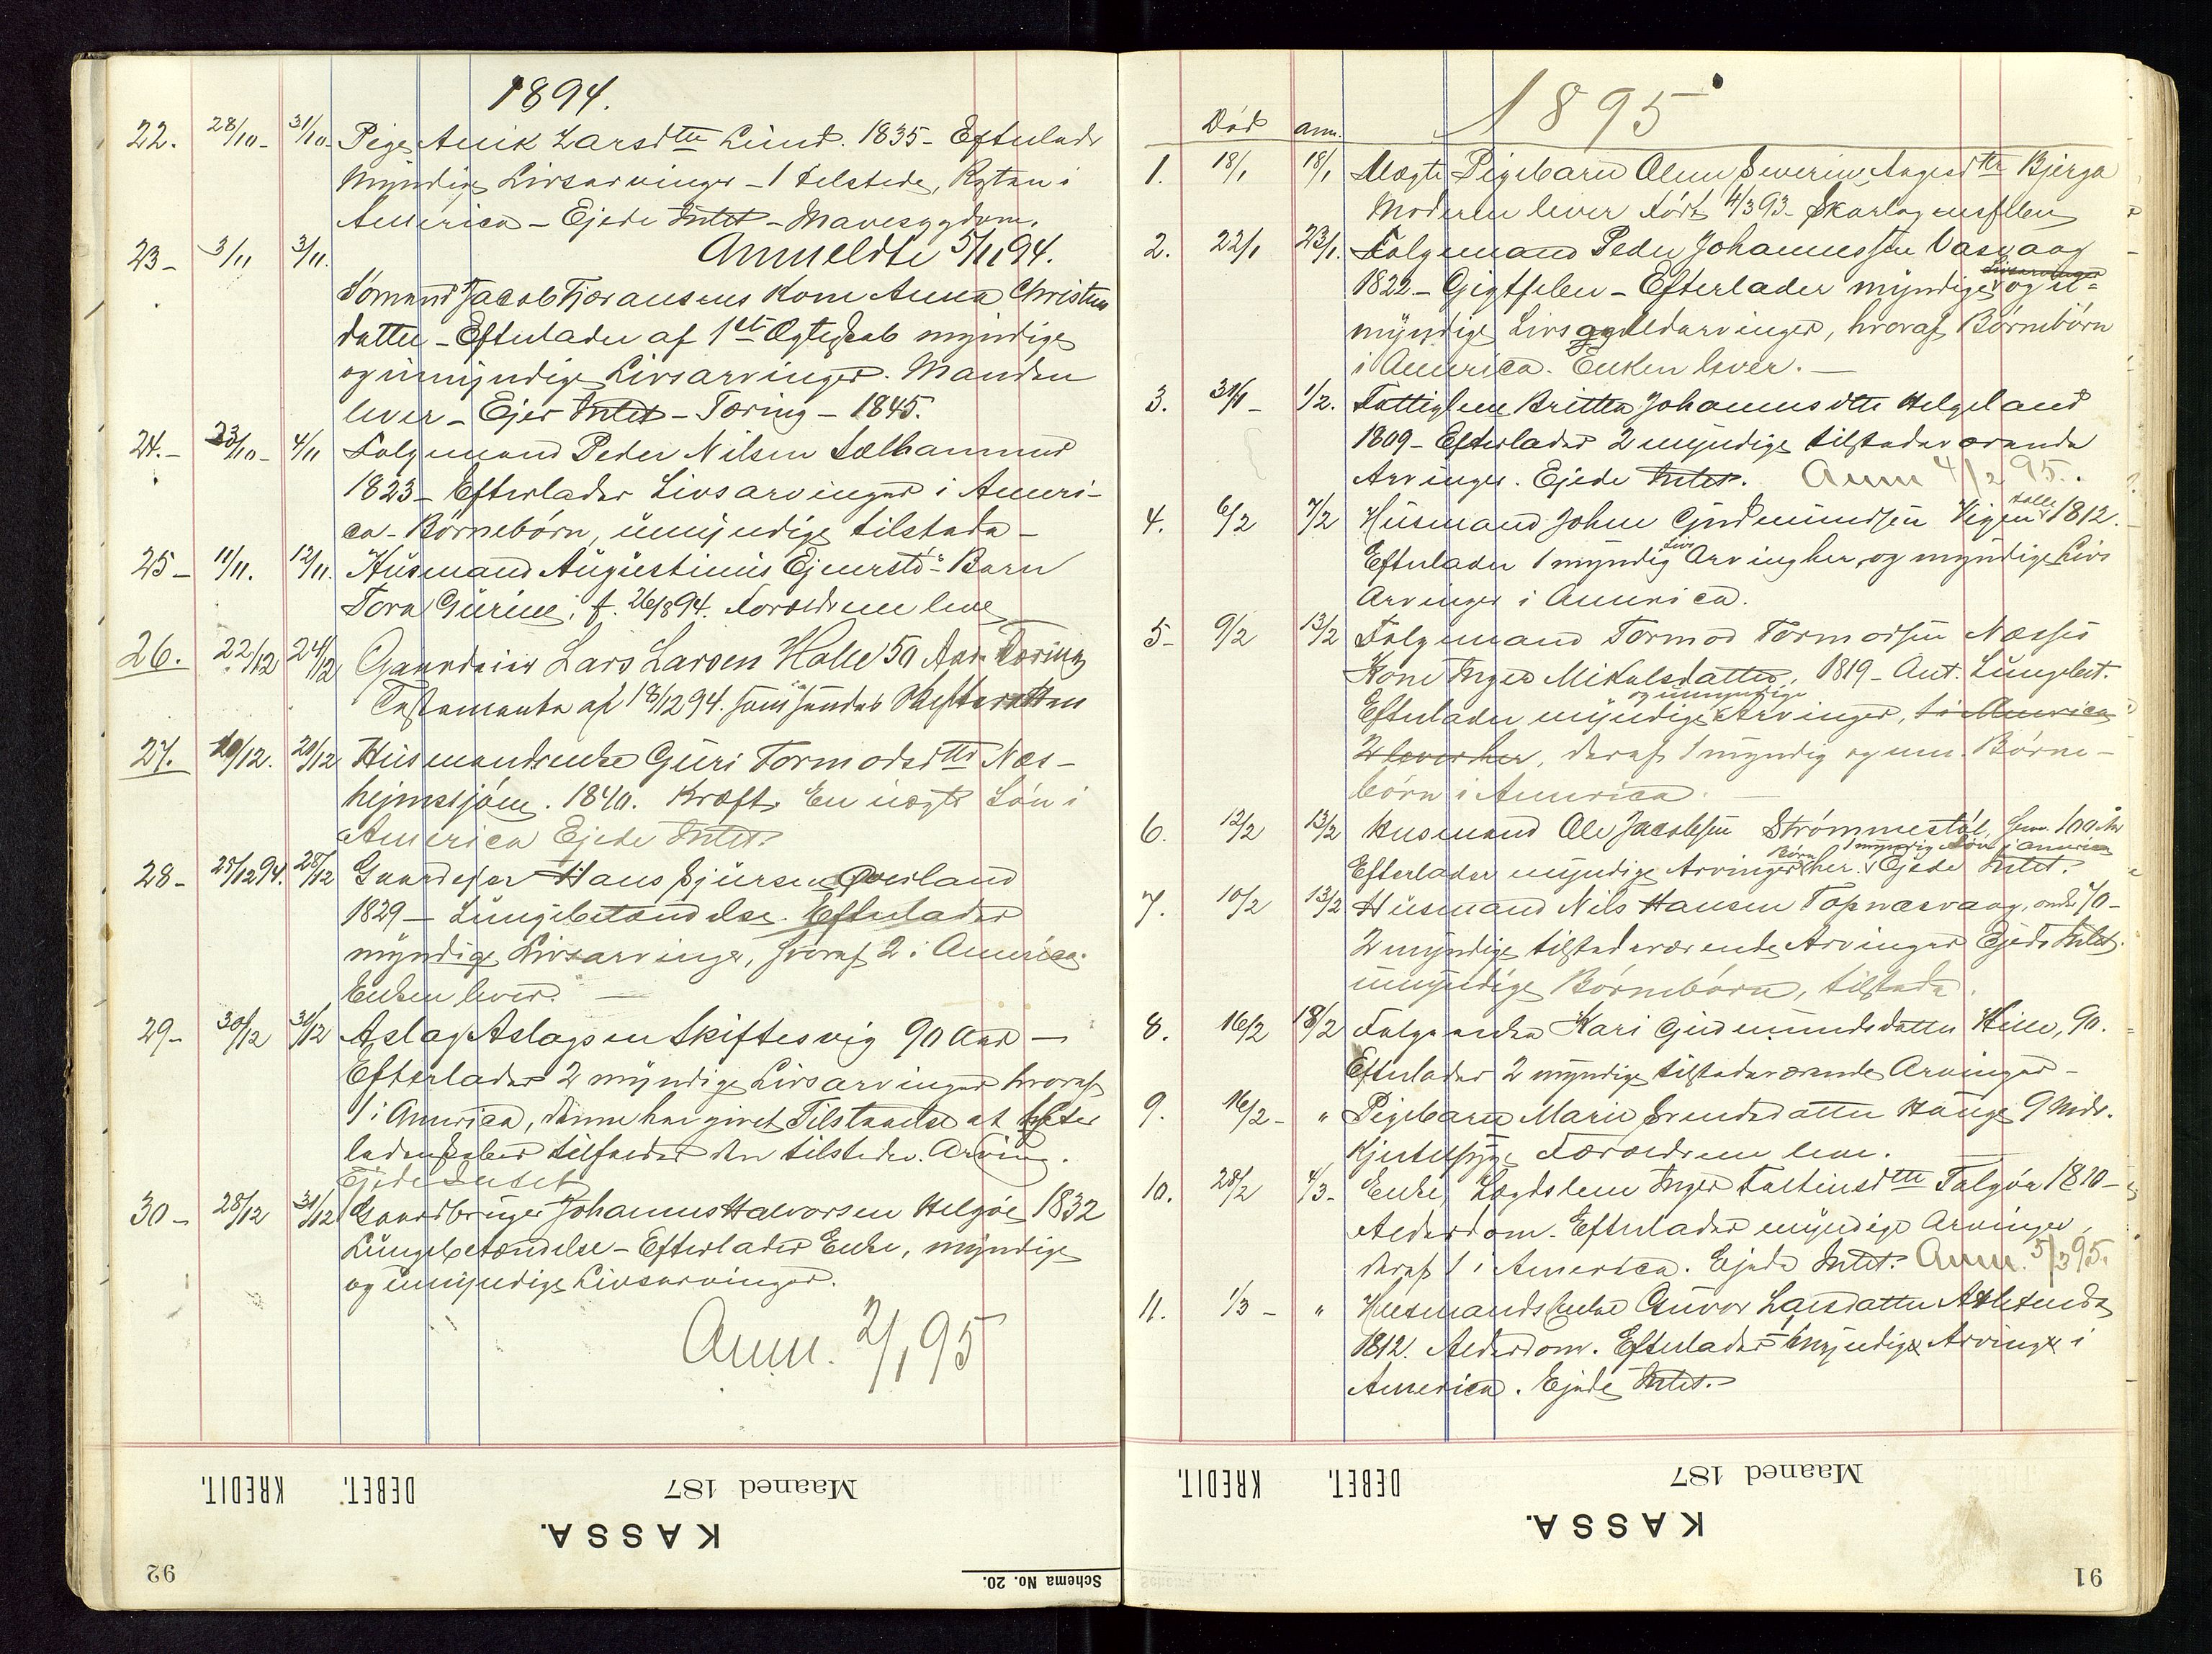 1894.
22. 28/10- 31/10- Pige Anik Larsdtter Lund. 1835- Efterlader
Myndige Livsarvinger - 1 tilstede, Resten i
America - Ejede Intet - Mavesygdom.
Anmeldte 5/11 94.
23- 3/11 3/11.
Sømand Jacob Tjøransens Kone Anna Christens
datter - Efterlader af 1ste Ægteskab myndige
og umyndige Livsarvinger. Manden
lever - Ejer Intet - Tæring - 1845.
24.- 23/10- 4/11 Folgemand Peder Nilsen Sælhammer
1823- Efterlader Livsarvinger i Ameri-
ca - Børnebørn, umyndige tilstede -
25- 11/11. 12/11. Husmand Augustinus Barn
Tora Gurine, f. 26/8 94. Forældrene leve
26. 22/12 24/12 Gaardeier Lars Larsen Halle 50 Aar. Tæring
Testamente af 18/12 94. som sendes Skifteretten
27. 19/12. 29/12 Husmandsenke Guri Tormodsdtter Næs-
hejmstjøen. 1840. Kræft. En uægte Søn i
America Ejede Intet.
28- 25/12 94. 28/12 Gaardejer Hans Sjursen Qverland
1829 - Lungebetændelse. Efterlader
myndige Livsarvinger, hvoraf 2 i America.
Enken lever. -
29- 30/12 31/12 Aslag Aslagsen Skiftesvig 90 Aar -
Efterlader 2 myndige Livsarvinger hvoraf
1 i America, denne har givet Tilstaaelse at Efter
ladenskaber tilfalder den tilstedev. Arving.
Ejede Intet
30- 28/12 31/12 Gaardbruger Johannes Halvorsen Helgøe 1832
Lungebetændelse - Efterlader Enke, myndige
og umyndige Livsarvinger.
Anm. 2/1 95
KREDIT. DEBET. Maaned 187
KASSA.
92
Schema No. 20.
1895
Død anm.
1. 18/1 18/1 Uægte Pigebarn Oline Severine Aagesdtr Bjerga
Moderen lever Født 4/3 93- Skarlagensfeber
2. 22/1 23/1. Folgemand Peder Johannessen Vasvaag
Livsarvinger
1822- Gigtfeber - Efterlader myndige og u=
myndige Livs og Udarvinger, hvoraf Børnebørn
i America. Enken lever. -
3. 31/1- 1/2. Fattiglem Britta Johannesdtr Helgeland
1809- Efterlader 2 myndige tilstedeværende
Arvinger. Ejede Intet. Anm 4/2 95.
4. 6/2 7/2 Husmand John Gudmundsen Vigen 1812.
Efterlader 1 myndig Livs Arving her, og myndige Livs
Arvinger i America.
5- 9/2 13/2 Folgemand Tormod Tormodsen Næsses
Kone Inger Mikalsdatter, 1819- Ant. Lungebet.
og umyndige
Efterlader myndige Arvinger, 1 i America
2 lever her, deraf 1 myndig og um. Børne-
børn i America. -
6. 12/2 13/2 Husmand Ole Jacobsen Strømmestøl, henv. 100 Aar
Børn 1 myndig Søn i America
Efterlader myndige Arvinger her. Ejede Intet.
7. 10/2 13/2 Husmand Nils Hansen Topnæsvaag, omtr 70-
2 myndige tilstedeværende Arvinger Ejede Intet.
umyndige Børnebørn, tilstede.
8. 16/2 18/2 Folgeenke Kari Gudmundsdatter Hiim, 90.
Efterlader 2 myndige tilstedeværende Arvinger -
9. 16/2- " Pigebarn Marie Svendsdatter Hauge 9 Mdr.
Kjertelsyge Forældrene leve.
10. 28/2 4/3- Enke, Lægdslem Inger Faltinsdtter Talgøe 1810-
Alderdom. Efterlader myndige Arvinger,
deraf 1 i America. Ejede Intet. Anm. 5/3 95.
11. 1/3- " Husmandsenke Gunvor Larsdatter
1812. Alderdom. Efterlader 1 myndig Arving i
America. Ejede Intet.
KREDIT. DEBET. Maaned 187
KASSA.
91